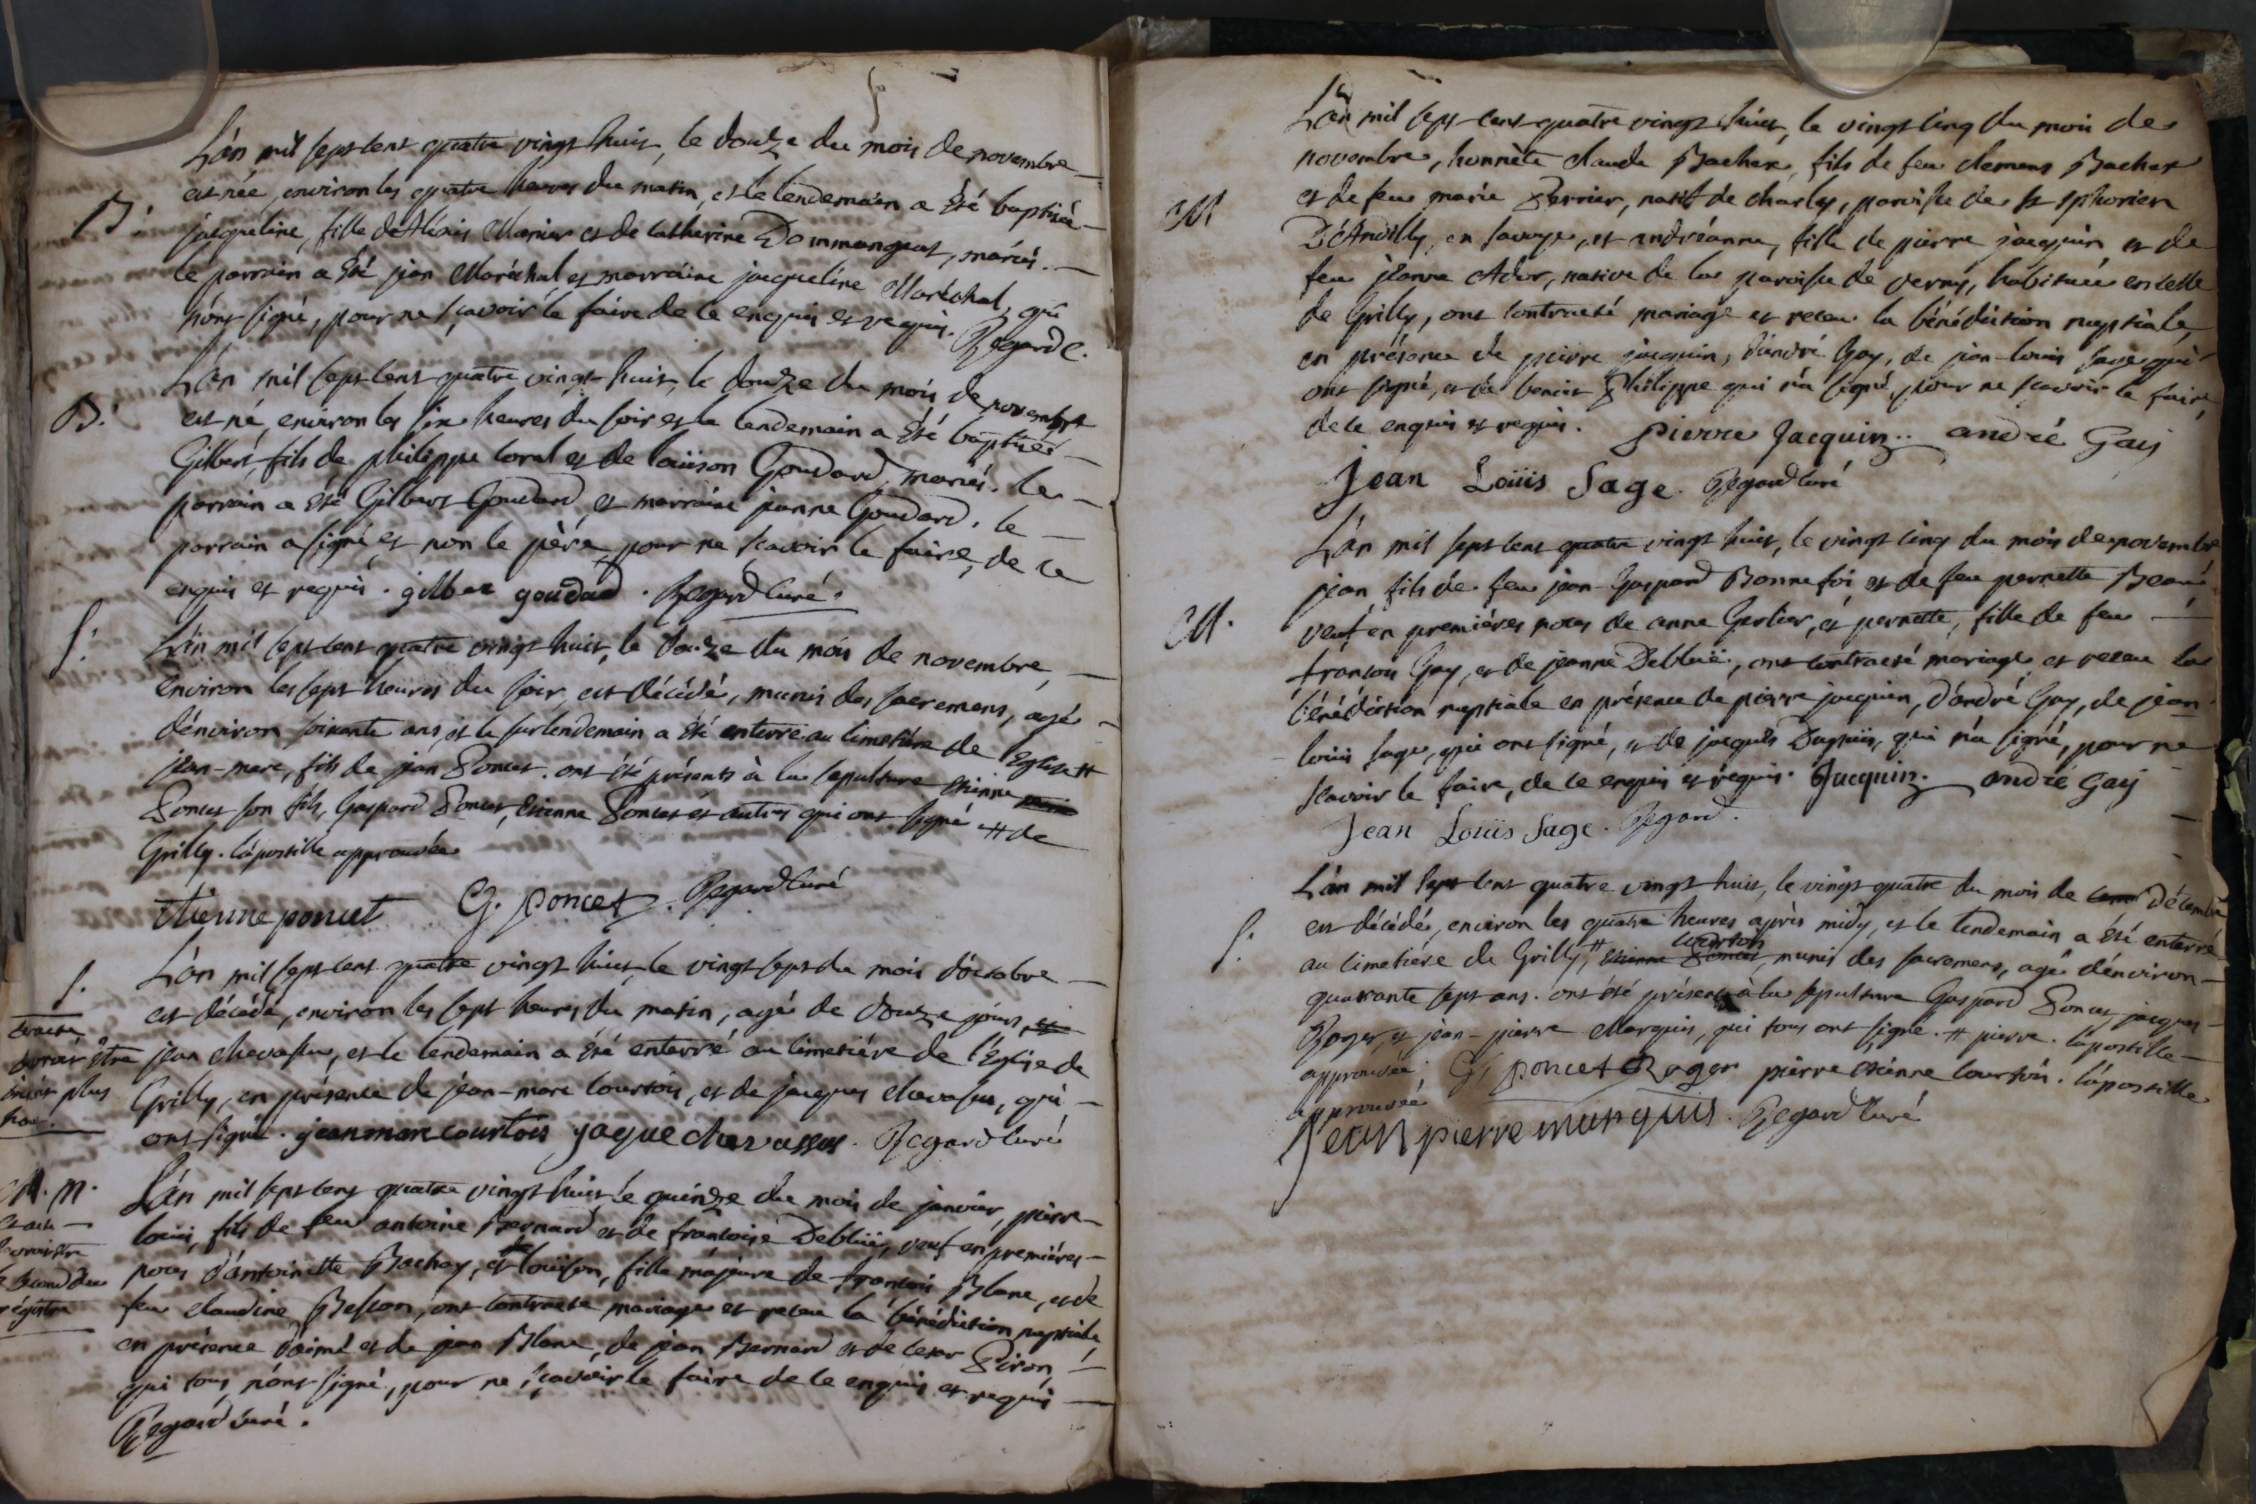 L'án mil sept cent quatre vingt huit, le douze du mois de novembre
B. est née, environ les quatre heures du matin, et le lendemain a été baptisée
jacqueline, fille d'Aléxis Marier et de Catherine Dommanget, mariés.
le parrain a été jean Maréchal, et marraine jacqueline Maréchal, qui
n'ont signé, pour ne sçavoir le faire de ce enquis et requis. Regard C.
L'án mil sept cent quatre vingt huit, le douze du mois de novembre
B. est né, environ les six heures du soir et le lendemain a été baptisé
Gilbert, fils de philippe Coral et de Loüison Goudard, mariés. le
parrain a été Gilbert Goudard, et marraine jeanne Goudard. le
parrain a signé, et non le père, pour ne sçavoir le faire, de ce
enquis et requis. gilber goudard. Regard Curé.
S. L'án mil sept cent quatre vingt huit, le douze du mois de novembre,
environ les sept heures du soir, est décédé, munis des sacremens, agé
d'environ soixante ans, et le surlendemain a été enterré au cimetière de l'Eglise #
jean-marc, fils de jean Poncet. ont été présents à la sepulture Etienne
Poncet son fils, Gaspard Poncet, Etienne Poncet et autres qui ont signé # de
Grilly. l'apostille approuvée
Etienne poncet G. poncet. Regard Curé
S. L'án mil sept cent quatre vingt huit, le vingt sept du mois d'octobre
est décédé, environ les sept heures du matin, agé de douze jours,
jean chevassu, et le lendemain a été enterré au cimetière de l'Eglise de
Grilly, en présence de jean-marc Courtois, et de jacques chevassus, qui
ont signé. jean marc courtois jaque chevassus. Regard Curé
être
plus
haut.
M. L'án mil sept cent quatre vingt huit le quinze du mois de janvier, pierre-
Loüis, fils de feu antoine Bernard et de françoise Debluë, veuf en premières
noces d'antoinette Bachay, et Loüison, fille majeure de françois Blanc, et de
feu claudine Besson, ont contracté mariage et receu la bénédiction nuptiale,
en présence d'aimé et de jean Blanc, de jean Bernard et de Cesar Piron,
qui tous n'ont signé, pour ne sçavoir le faire de ce enquis et requis
Regard curé.
Cet acte
le second du
régistre
L'án mil sept cent quatre vingt huit, le vingt cinq du mois de
novembre, honnête claude Bachex, fils de feu clemens Bachex
M et de feu marie Perrier, natif de charly, paroisse de St sphorien
D'Andilly, en savoye, et andréanne, fille de pierre jacquin et de
feu jeanne Ador, native de la paroisse de verny, habituée en celle
de Grilly, ont contracté mariage et receu la bénédiction nuptiale,
en présence de pierre jacquin, d'andré Gay, de jean-louis sage qui
ont signé, et de benoit Philippe qui n'a signé, pour ne scavoir le faire,
de ce enquis et requis. Pierre Jacquin. andré Gay
Jean Loüis Sage. Regard Curé
L'án mil sept cent quatre vingt huit, le vingt cinq du mois de novembre
jean fils de feu jean Gaspard Bonnefoi, et de feu pernette
M. veuf en premières noces de anne Gerlier, et pernette, fille de feu
françois Gay, et de jeanne Debluë, ont contracté mariage et receu la
bénédiction nuptiale en présence de pierre jacquin, d'andré Gay, de jean-
louis sage, qui ont signé, et de jacques Dupuis, qui n'a signé, pour ne
scavoir le faire, de ce enquis et requis. Jacquin. andré Gay
Jean Loüis Sage. Regard.
L'án mil sept cent quatre vingt huit, le vingt quatre du mois de décembre
est décédé, environ les quatre heures après midy, et le lendemain a été enterré
courtois
S. au cimetière de Grilly, # Etienne Poncet, munis des sacremens, agé d'environ
quarante sept ans. ont été présens à la sepulture Gaspard Poncet, jacques
Roger, et jean-pierre Marquis, qui tous ont signé. # pierre. l'apostille
approuvée. G. poncet Roger pierre etienne courtois. l'apostille
approuvée
Jean pierre marquis. Regard Curé